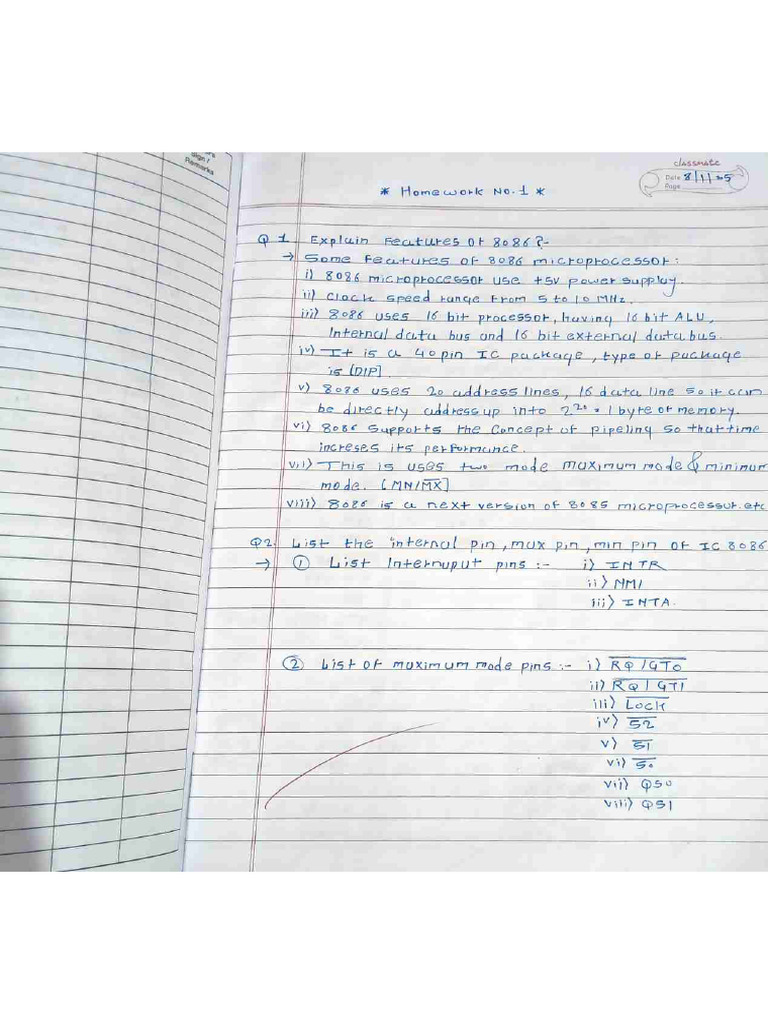 Sign /
Remarks
classmate
Date 8/1/25
Page
* Homework No. 1 *
Q 1 Explain Features of 8086?-
→ Some Features of 8086 microprocessor:
i) 8086 microprocessor use +5v power supply.
ii) Clock speed range from 5 to 10 MHz.
iii) 8086 uses 16 bit processor, having 16 bit ALU,
Internal data bus and 16 bit external data bus.
iv) It is a 40 pin IC package, type of package
is [DIP].
v) 8086 uses 20 address lines, 16 data line so it can
be directly address up into 2²⁰ = 1 byte of memory.
vi) 8086 supports the concept of pipeling so that time
increses its performance.
vii) This is uses two mode maximum mode & minimum
mode. [MN/M̅X̅]
viii) 8086 is a next version of 8085 microprocessor. etc
Q2. List the internal pin, max pin, min pin of IC 8086
→ ① List Internuput pins :- i) INTR
ii) NMI
iii) INTA.
② List of maximum mode pins :- i) R̅Q̅/G̅T̅0̅
ii) R̅Q̅/G̅T̅1̅
iii) L̅O̅C̅K̅
iv) S̅2̅
v) S̅1̅
vi) S̅0̅
vii) QS0
viii) QS1